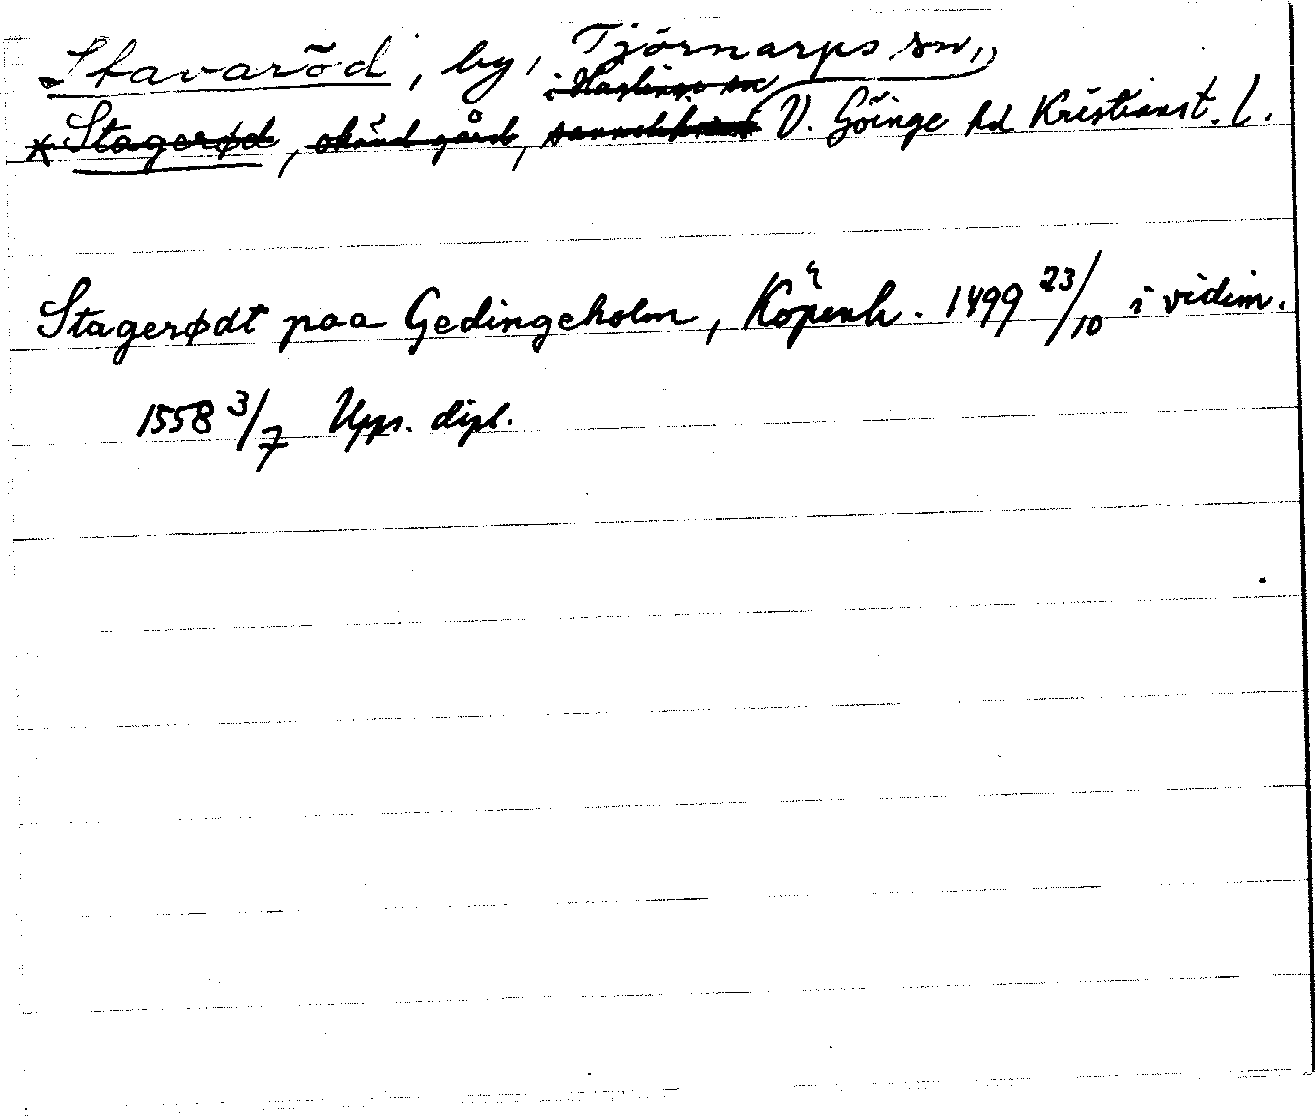 Stavaröd, by, Tjörnarps sn,
i Häglinge sn
x Stagerød, okänd gård, sannolikt V. Göinge hd Kristianst. l.
Stagerødt paa Gedingeholm, Köpenh. 1499 23/10 i vidim.
1558 3/7 Upps. dipl.